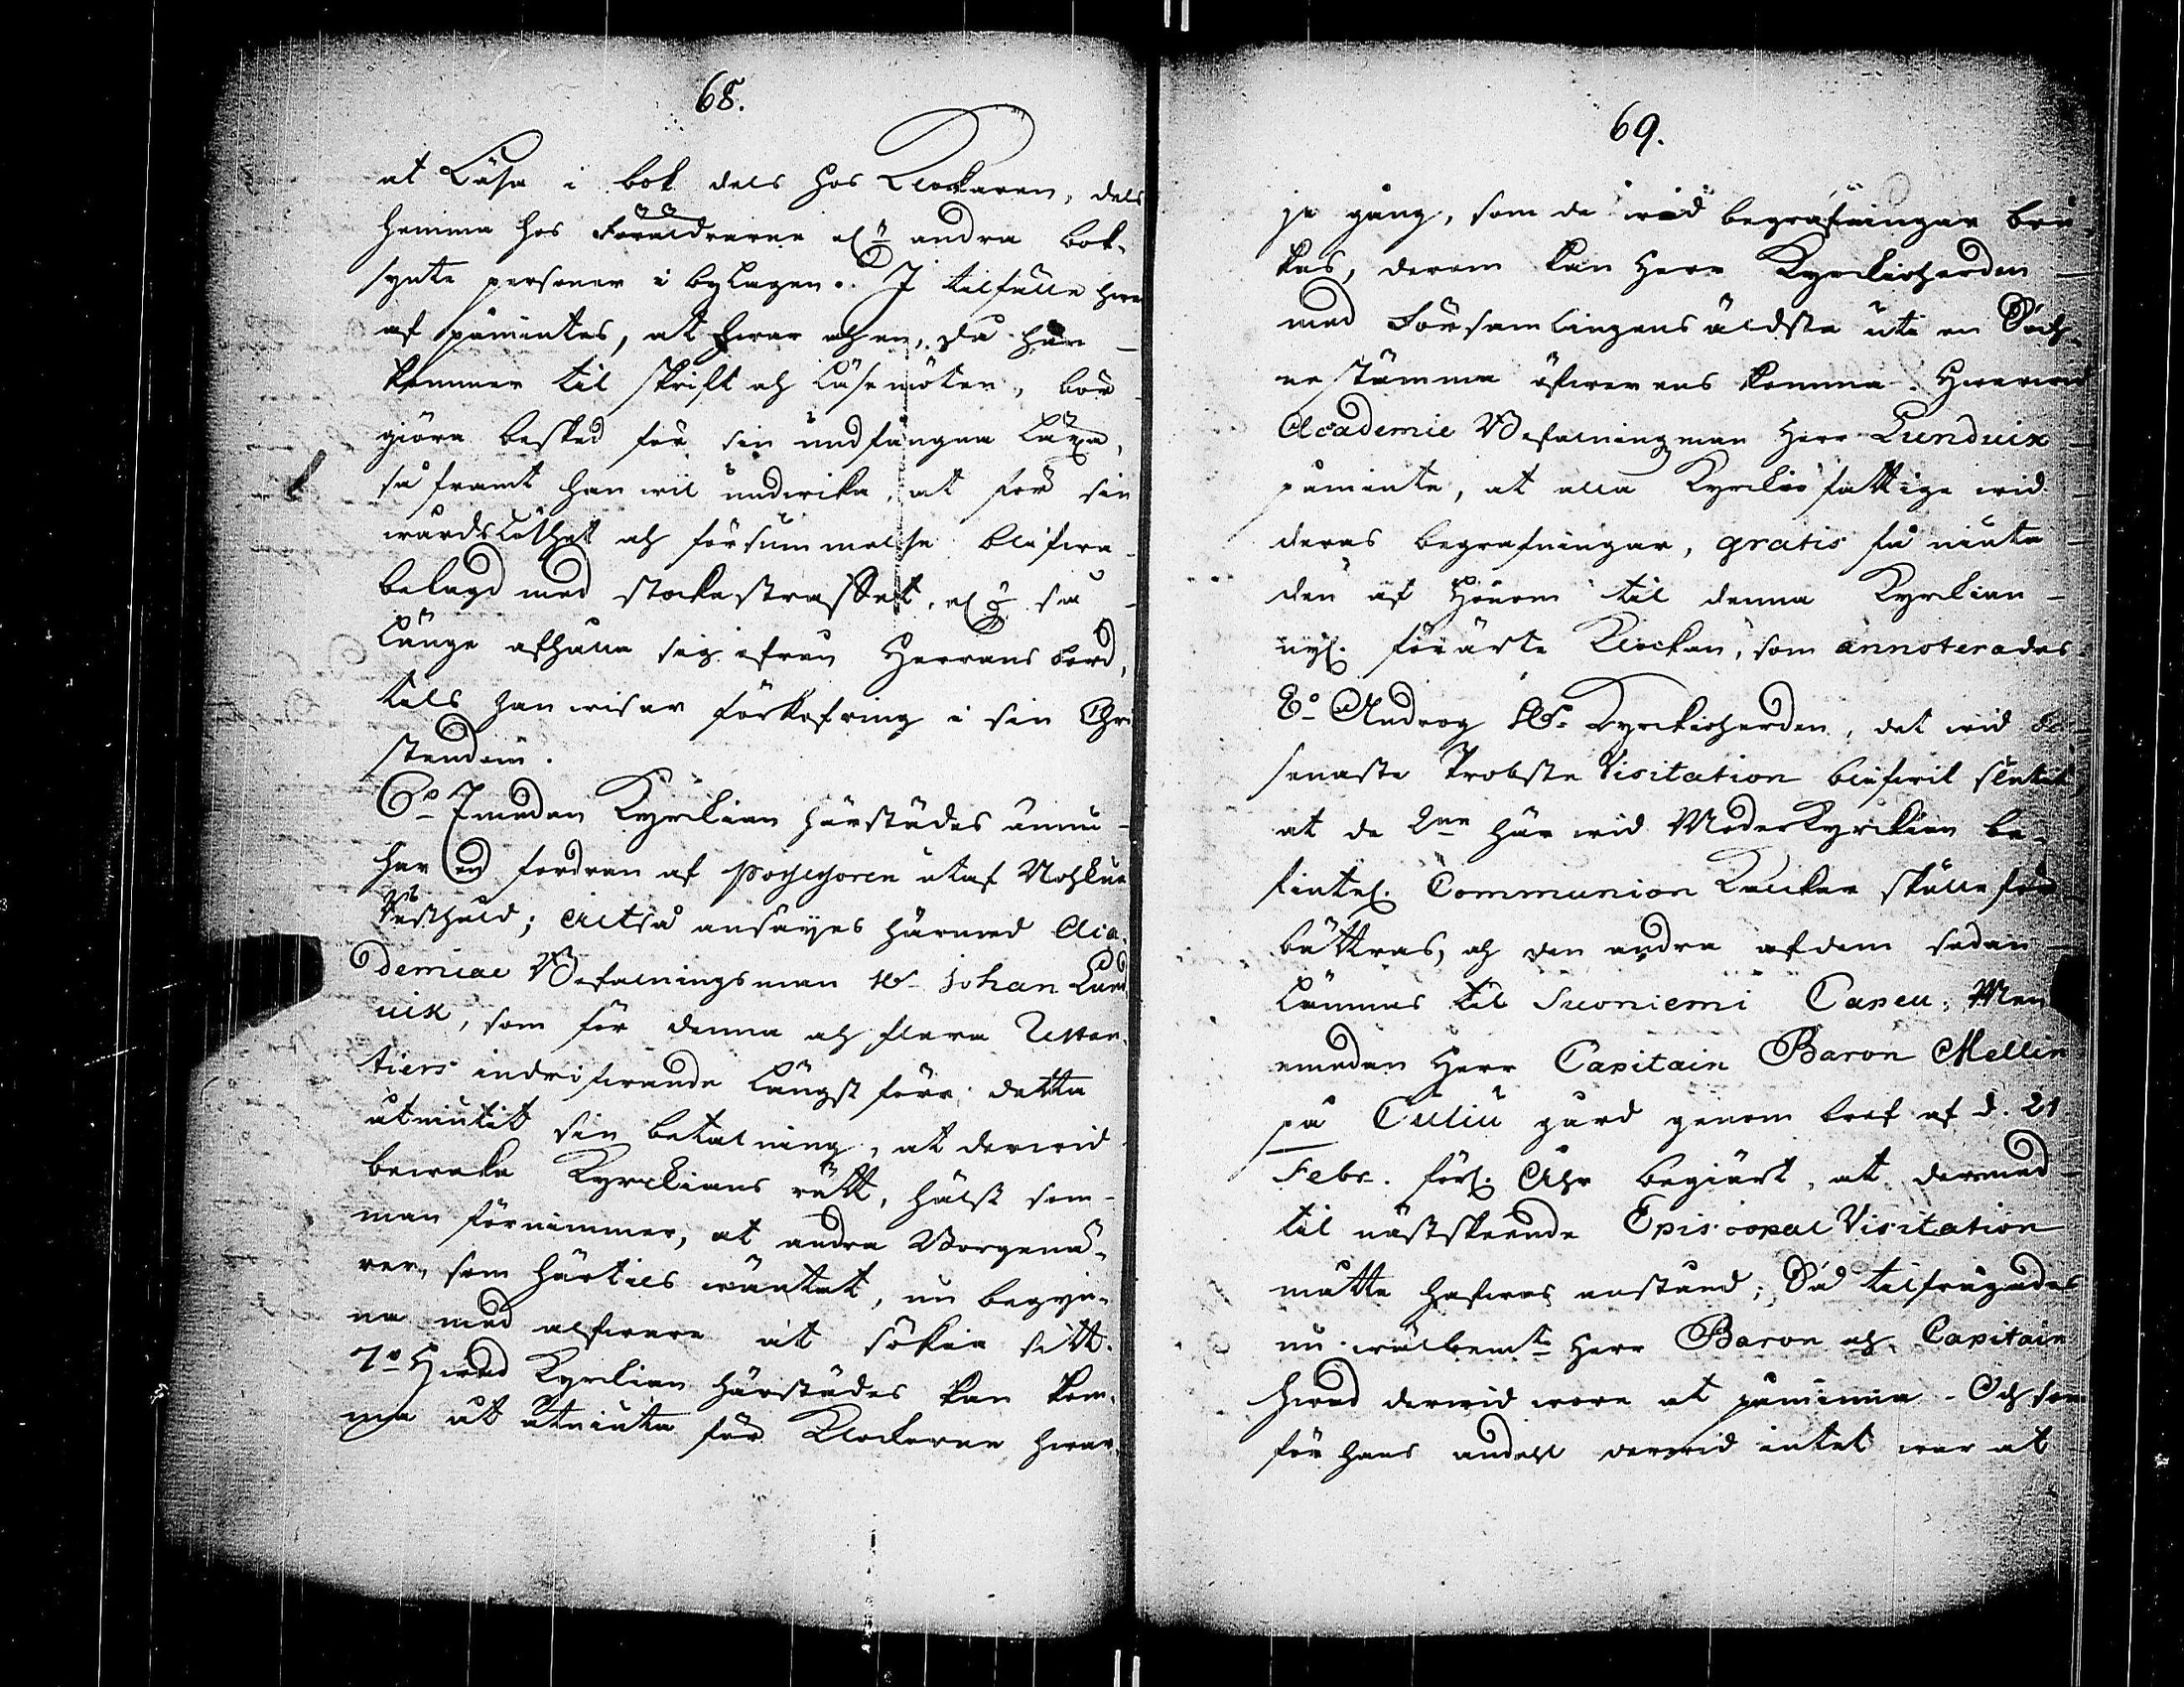 68.
at Läsa i bok dels hos Klockaren, dels
hemma hos Föräldrarne elr andra bok-
synte personer i bylagen. I tilfälle hwar
af påmintes, at hwar och en, då han
kommer til skrift och läsemöten, bör
giöra besked för sin undfångna läxa,
så framt han wil undwika, at för sin
wårdslöshet och försummelse blifwa
belagd med stockastraffet, elr så
länge afhålla sig ifrån Herrans bord,
tils han wisar förkofring i sin Chri
stendom.
6o Emedan Kyrckian härstädes ännu
har en fordran af possessoren utaf Nohkua
Sästhåld; altså ansågs härmed Aca-
demiae Befalningsman Hr Johan Lund
uik, som för denna och flera Restan-
tiers indrifwande längst förr detta
utniutit sin betalning, at derwid
bewaka Kyrckians rätt, hälst som
man förnimmer, at andra Borgenä-
rer, som härtils wäntat, nu begyn-
na med alfware at sökia sitt.
7o Hwad Kyrckian härstädes kan kom-
ma at utniuta för Klockorne hwar-
69.
je gång, som de wid begrafningar bru
kas, derom kan Herr Kyrckioherden
med Församlingens äldste uti en Sock-
nestämma öfwerens komma. Hwarwid
Academie Befalningzman Herr Lunduik
påminte, at alla Kyrckio fattige wid
deras begrafningar, gratis få niuta
den af Honom til denna Kyrckian
nyl. förärte Klockan, som annoterades.
8o Androg Hr Kyrckioherden, det wid de
senaste Probste Visitation blifwit slutit
at de 2ne här wid Moderkyrckian be-
fintel. Communion Kalckar skulle för
bättras, och den andra af dem sedan
lämnas til Suoniemi Capell; Men
emedan Herr Capitain Baron Mellin
på Culiu gård genom bref af d. 21
Febr. förl. Åhr begiärt, at dermed
til nästskeende Episcopal Visitation
måtte hafwas anstånd; Så tilfrågades
nu wälbemte Herr Baron och Capitain
hwad derwid wore at påminna. Och som
för hans andehl derwid intet war at